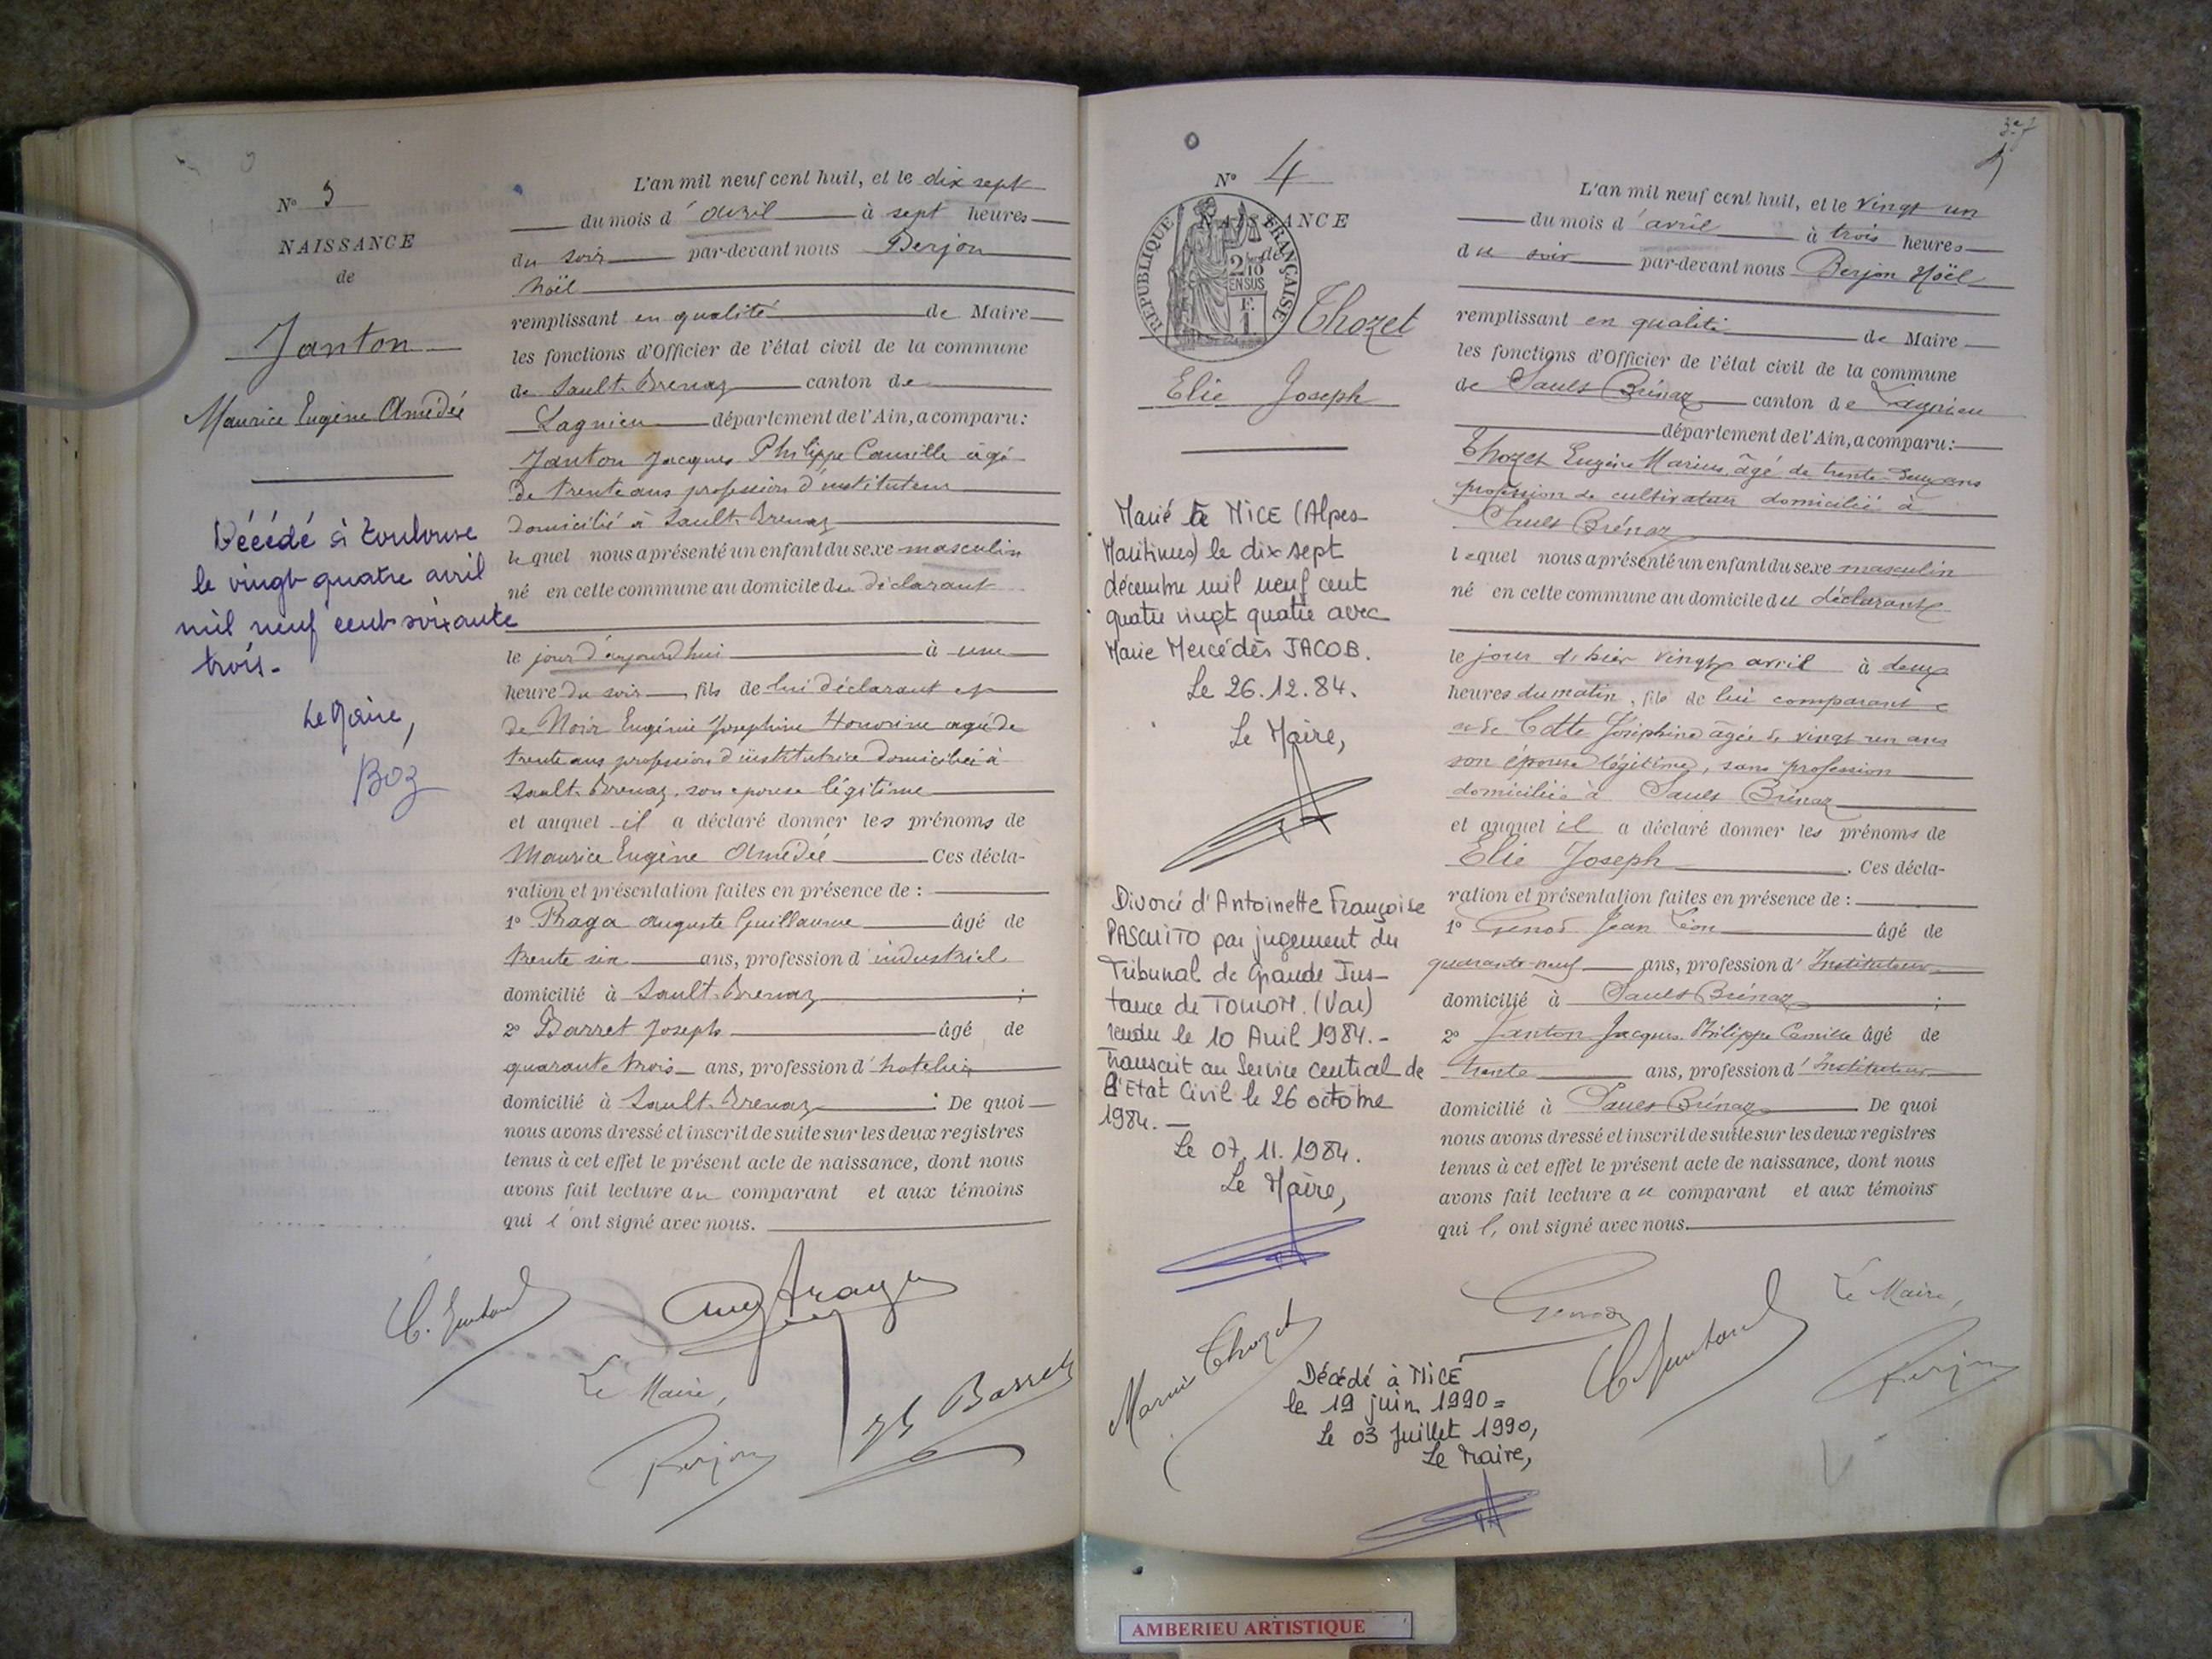 N° 3
NAISSANCE
de
Janton
Maurice Eugène Amédée
Décédé à Toulouse
le vingt-quatre avril
mil neuf cent soixante
trois.
Le Maire,
BOZ
L'an mil neuf cent huit, et le dix sept
du mois d'avril à sept heures
du soir par-devant nous Berjon
Noël
remplissant en qualité de Maire
les fonctions d'Officier de l'état civil de la commune
de Sault-Brenaz canton de
Lagnieu département de l'Ain, a comparu:
Janton Jacques Philippe Camille âgé
de trente ans profession d'instituteur
domicilié à Sault-Brenaz
lequel nous a présenté un enfant du sexe masculin
né en cette commune au domicile du déclarant
le jour d'aujourd'hui à une
heure du soir, fils de lui déclarant et
de Noir Eugénie Josephine Honorine agée de
trente ans profession d'institutrice domiciliée à
Sault-Brenaz, son epouse légitime
et auquel il a déclaré donner les prénoms de
Maurice Eugène Amédée Ces décla-
ration et présentation faites en présence de :
1° Praga Auguste Guillaume âgé de
trente six ans, profession d'industriel
domicilié à Sault-Brenaz ;
2° Barret Joseph âgé de
quarante trois ans, profession d'hotelier
domicilié à Sault-Brenaz : De quoi
nous avons dressé et inscrit de suite sur les deux registres
tenus à cet effet le présent acte de naissance, dont nous
avons fait lecture au comparant et aux témoins
qui l'ont signé avec nous.
Le Maire,
Berjon
Barret
3e f
N° 4
NAISSANCE
de
REPUBLIQUE FRANÇAISE
Thozet
Elie Joseph
Marié à NICE (Alpes-
Maritimes) le dix sept
décembre mil neuf cent
quatre vingt quatre avec
Marie Mercédès JACOB.
Le 26.12.84.
Le Maire,
Divorcé d'Antoinette Françoise
PASQUITO par jugement du
Tribunal de Grande Ins-
tance de TOULON. (Var)
rendu le 10 Avril 1984.-
Transcrit au Service central de
l'Etat Civil le 26 octobre
1984.-
Le 07.11.1984.
Le Maire,
L'an mil neuf cent huit, et le vingt un
du mois d'avril à trois heures
du soir par-devant nous Berjon Noël
remplissant en qualité de Maire
les fonctions d'Officier de l'état civil de la commune
de Sault Brénaz canton de Lagnieu
département de l'Ain, a comparu:
Thozet Eugène Marius, âgé de trente-deux ans
profession de cultivateur domicilié à
Sault Brénaz
lequel nous a présenté un enfant du sexe masculin
né en cette commune au domicile du déclarant
le jour d'hier vingt avril à deux
heures du matin, fils de lui comparant
et de Cotte Joséphine âgée de vingt un ans
son épouse légitime, sans profession
domiciliée à Sault Brénaz
et auquel il a déclaré donner les prénoms de
Elie Joseph . Ces décla-
ration et présentation faites en présence de :
1° Genod Jean Léon âgé de
quarante-neuf ans, profession d'Instituteur
domicilié à Sault Brénaz ;
2° Janton Jacques Philippe Camille âgé de
trente ans, profession d'Instituteur
domicilié à Sault Brénaz De quoi
nous avons dressé et inscrit de suite sur les deux registres
tenus à cet effet le présent acte de naissance, dont nous
avons fait lecture au comparant et aux témoins
qui l, ont signé avec nous.
Genod
Le Maire,
Marius Thozet
C. Janton
Berjon
Décédé à NICE
le 19 juin 1990=
Le 03 Juillet 1990,
Le Maire,
AMBERIEU ARTISTIQUE